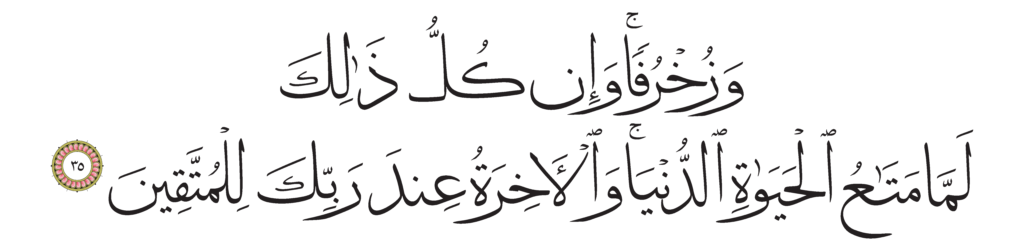 وَزُخْرُفًاۚ وَإِن كُلُّ ذَٰلِكَ
لَمَّا مَتَٰعُ ٱلْحَيَوٰةِ ٱلدُّنْيَاۚ وَٱلْأَخِرَةُ عِندَ رَبِّكَ لِلْمُتَّقِينَ ٣٥